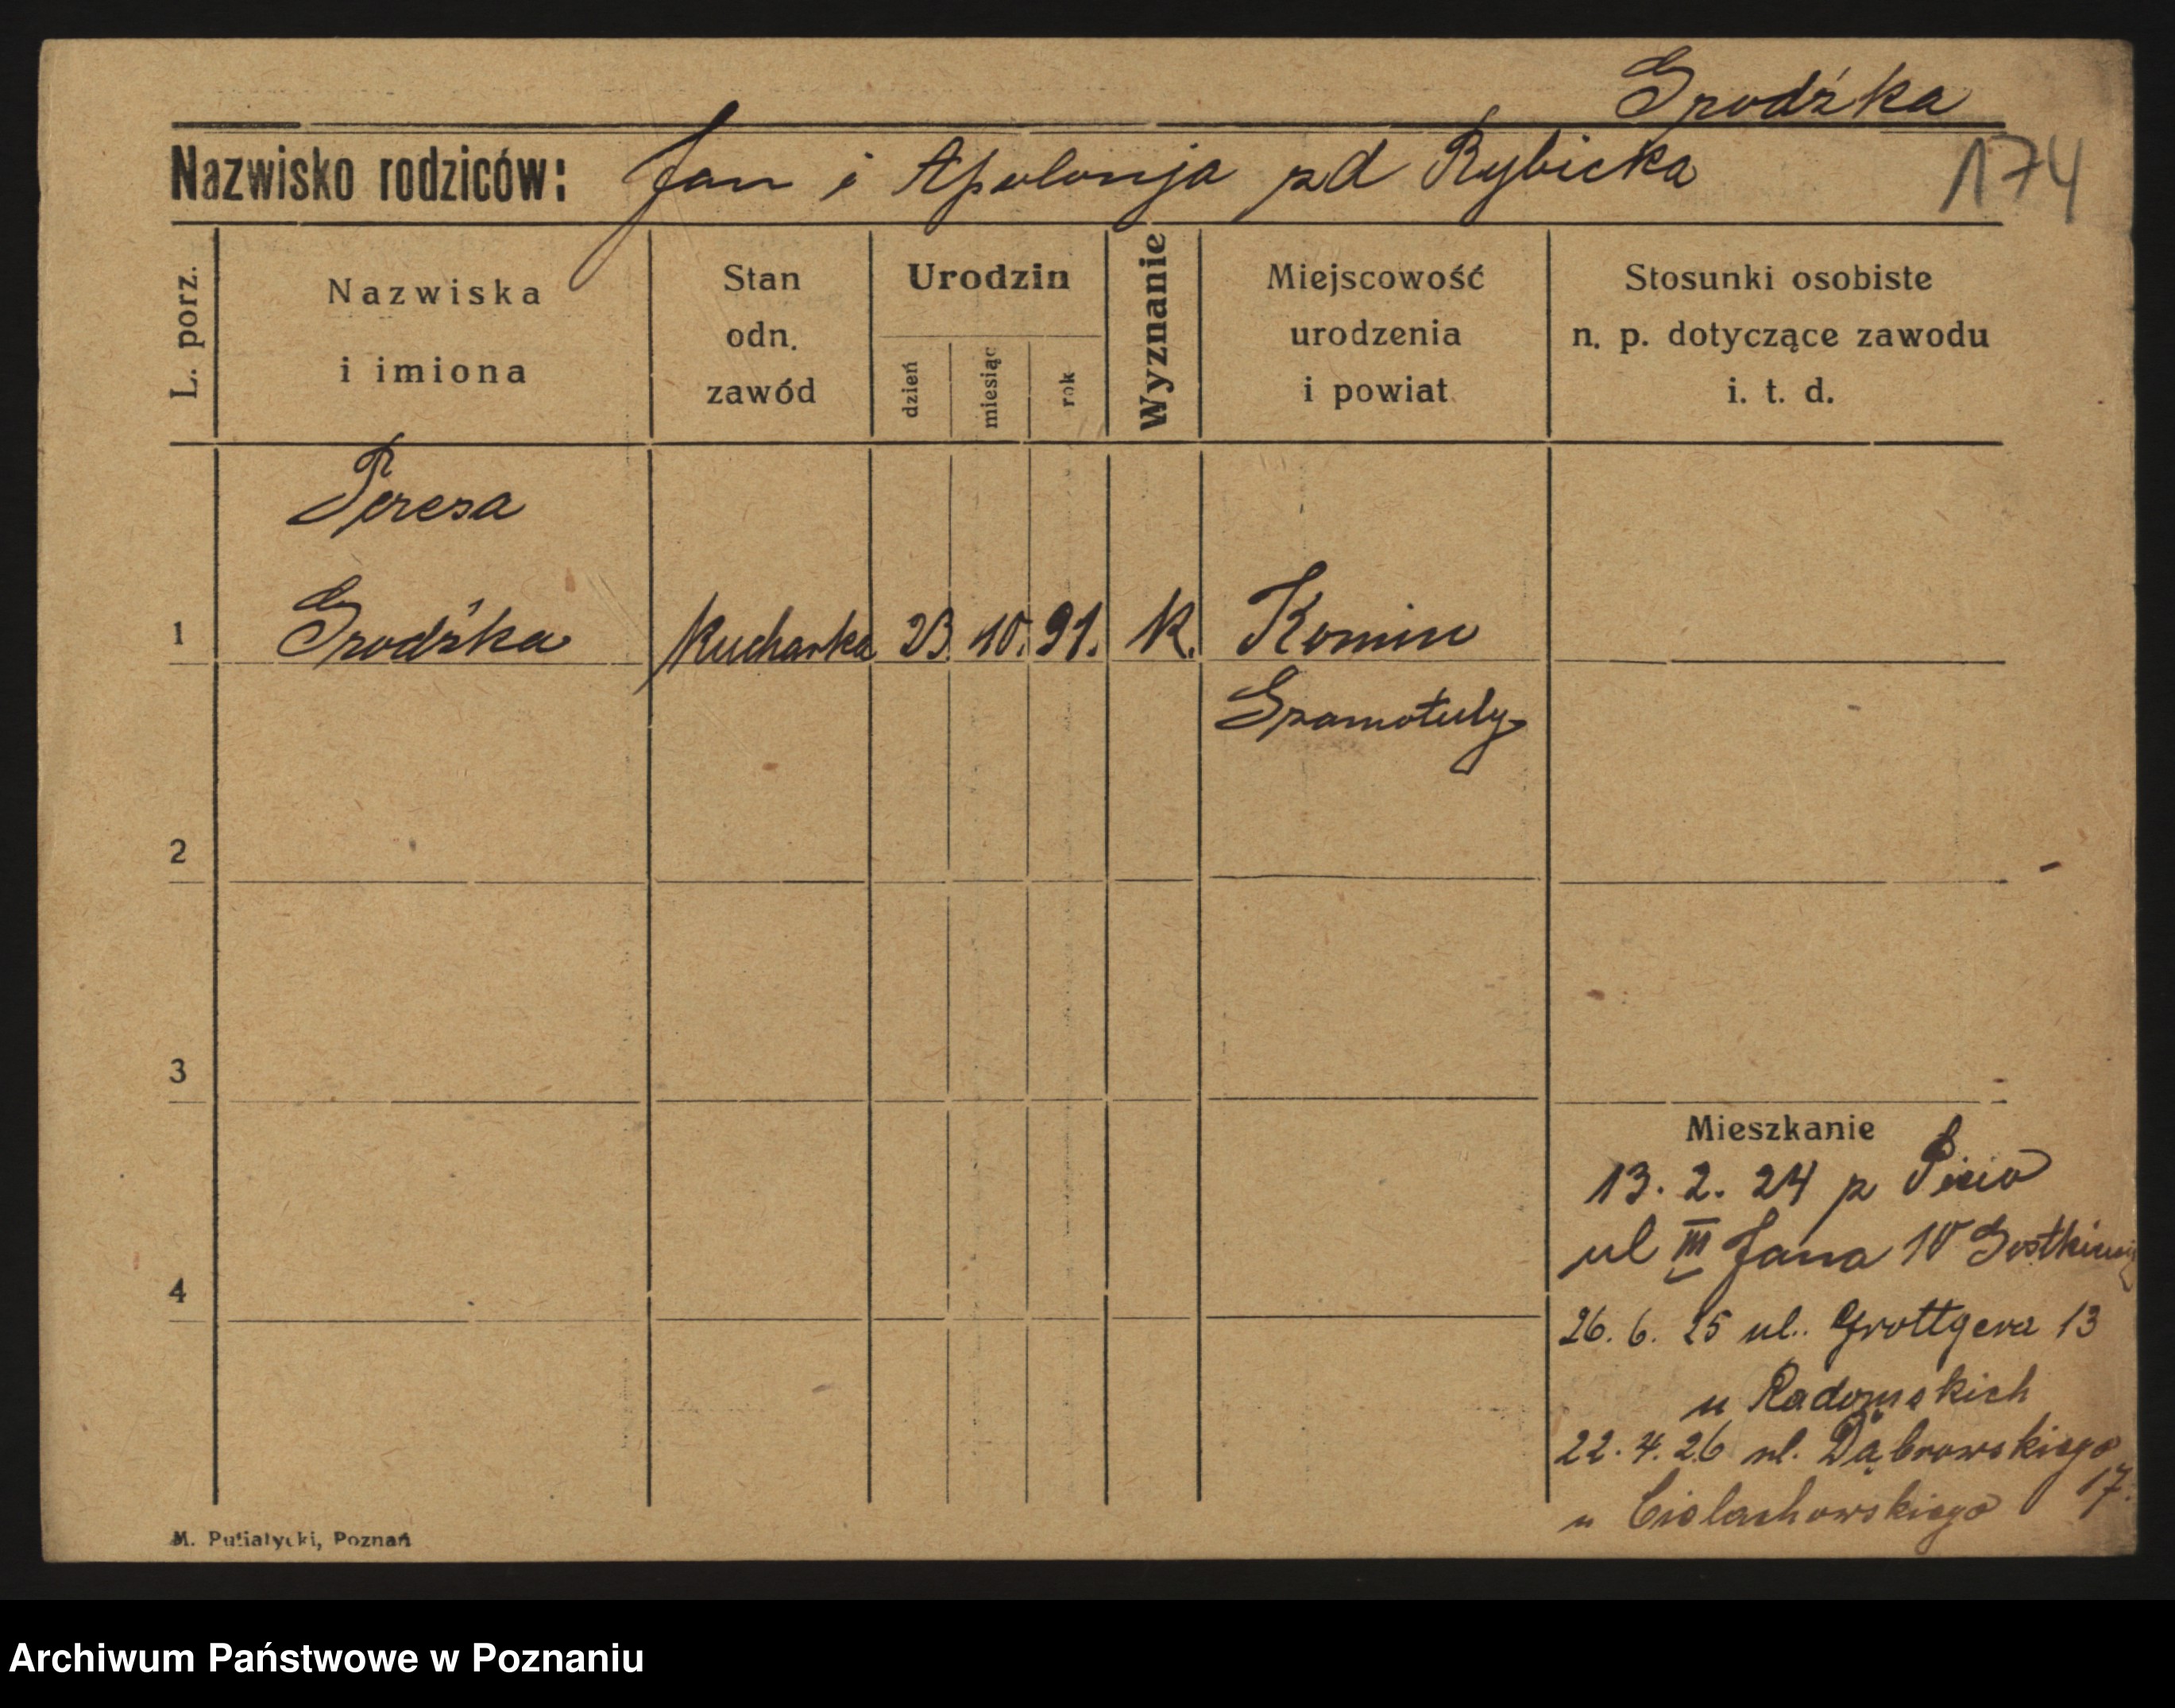 Grodźka
Nazwisko rodziców: Jan i Apolonja zd Rybicka
174
L. porz.
Nazwiska
i imiona
Stan
odn.
zawód
Urodzin
dzień
miesiąc
rok
Wyznanie
Miejscowość
urodzenia
i powiat
Stosunki osobiste
n. p. dotyczące zawodu
i. t. d.
Teresa
1 Grodźka Kucharka 23. 10. 91. K. Komin
Szamotuły
2
3
Mieszkanie
13. 2. 24 z
ul III Jana 10
4
26. 6. 25 ul. Grottgera 13
u Radomskich
22. 4. 26 ul. Dąbrowskiego
17.
u Cielachowskiego
M. Putiatycki, Poznań
Archiwum Państwowe w Poznaniu